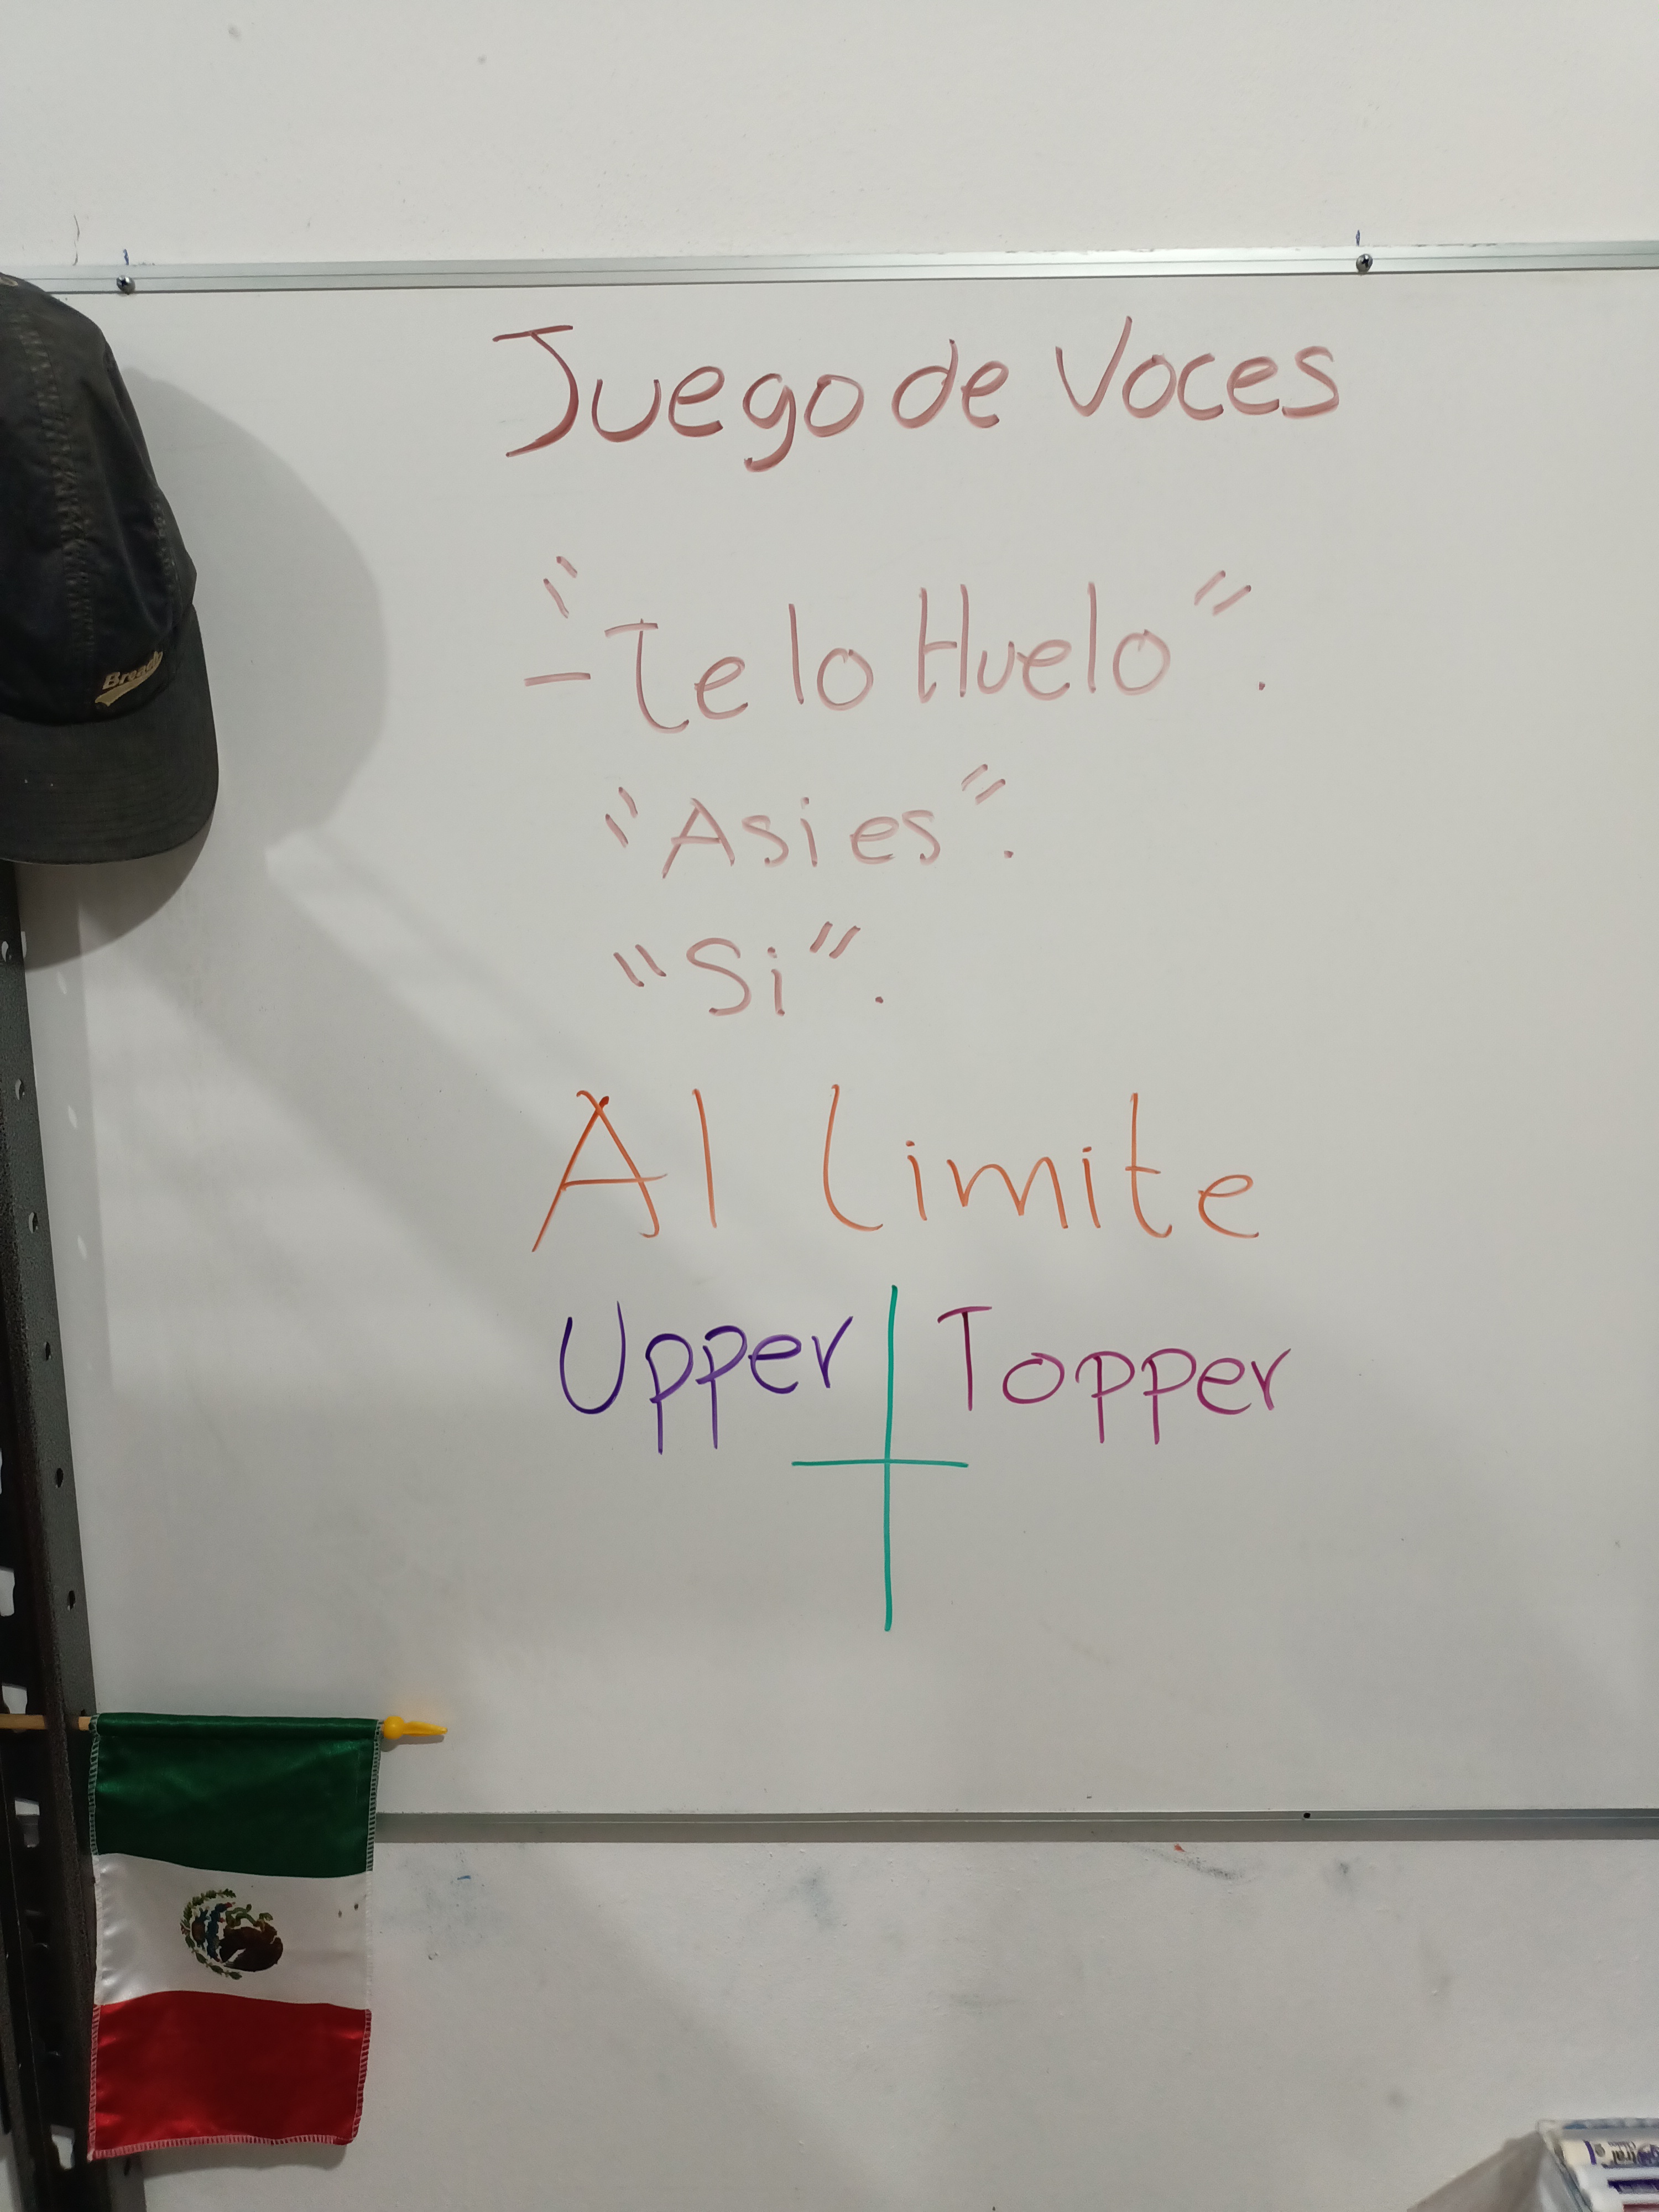 Juego de Voces
"
- Te lo Huelo".
"Asi es".
"Si".
Al Limite
Upper | Topper
Breach